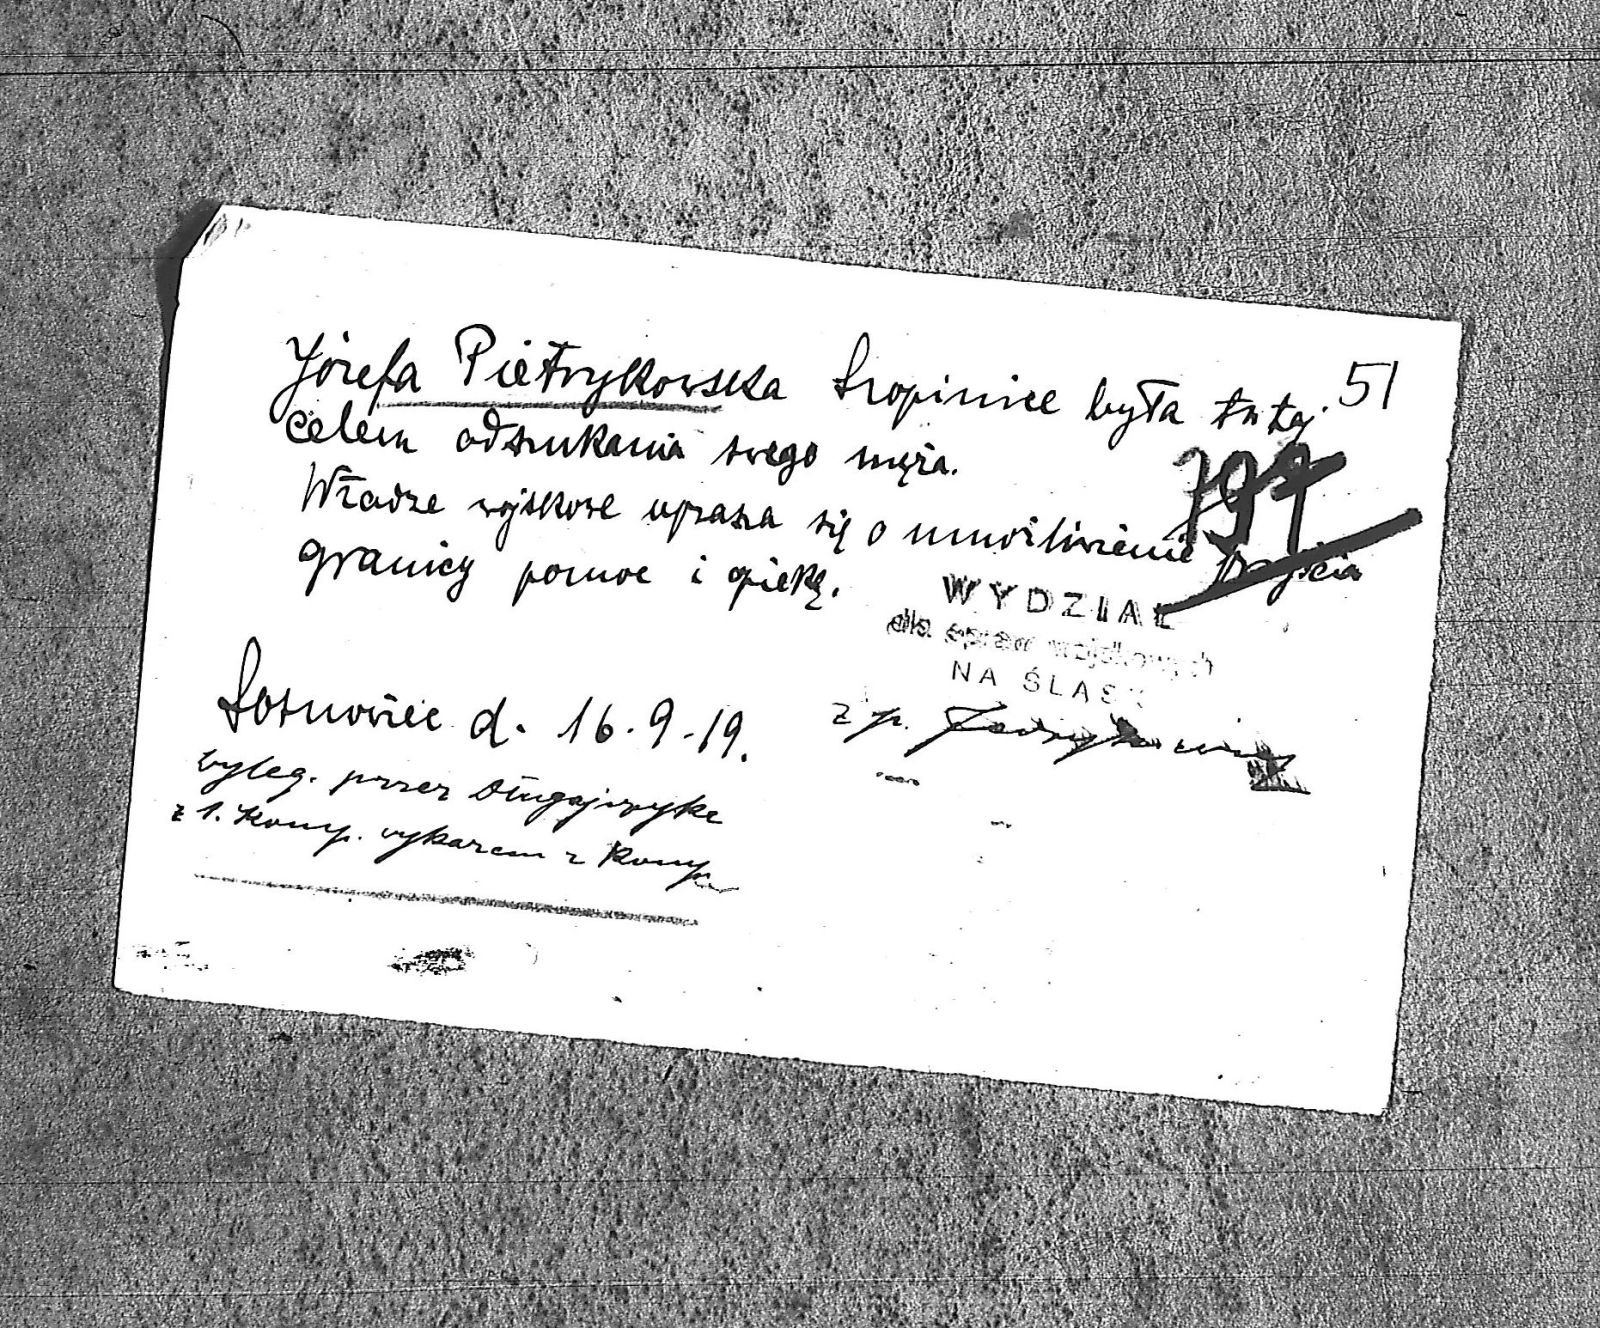 51
Józefa Pietrzykowska Szopinice była tutaj
celem odszukania swego męża.
797
Władze wojskowe uprasza się o umożliwienie przejścia
granicy pomoc i opiekę.
WYDZIAŁ
dla spraw wojskowych
NA ŚLĄSK
Sosnowiec d. 16.9.19.
z p.
wyleg. przez Długajczyka
z 1. Komp. wykazem z Komp